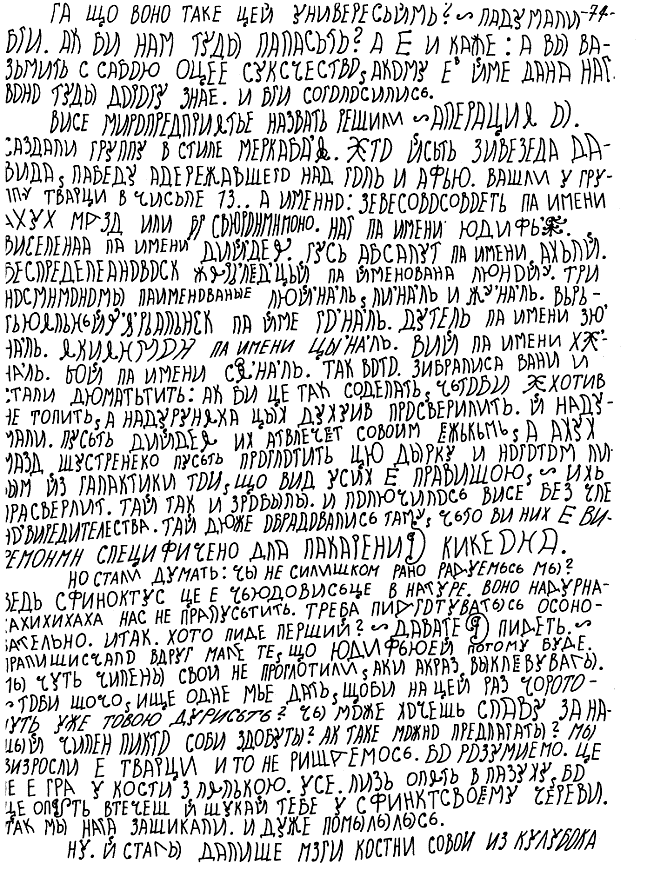 ГА ЩО ВОНО ТАКЕ ЦЕЙ УНИВЕРЕСЫЙМЬ? ~ ПАДУМАЛИ -74-
БГИ. АК БИ НАМ ТУДЫ ПАПАСЬТЬ? А Е И КАЖЕ: А ВЫ ВА-
ЗЬМИТЬ С САБОЮ ОЦЕЕ СУКСЧЕСТВО, АКОМУ Е В ИМЕ ДАНА НАГ.
ВОНО ТУДЫ ДОРОГУ ЗНАЕ. И БГИ СОГОЛОСИЛИСЬ.
ВИСЕ МИРОПРЕДПРИЯТЬЕ НАЗВАТЬ РЕШИЛИ ~ ОПЕРАЦИЯ Ю.
САЗДАЛИ ГРУППУ В СТИЛЕ МЕРКАБАЯ. ХТО ЙСЬТЬ ЗИВЕЗЕДА ДА-
ВИДА, ПАБЕДУ АДЕРЕЖАВШЕГО НАД ГОЛЬ И АФЬЮ. ВАШЛИ У ГРУ-
ППУ ТВАРЦИ В ЧИСЬЛЕ 13.. А ИМЕННО: ЗЕВЕСОВОСОВОЕТЬ ПА ИМЕНИ
АХУХ МАЗД ИЛИ НАГ ПА ИМЕНИ
ВИСЕЛЕНАА ПА ИМЕНИ ДИЙДЕЯ. ГУСЬ АБСАЛУТ ПА ИМЕНИ АХЬЛЙ.
ПА ЙМЕНОВАНА ЛЮНДЙУ. ТРИ
ПАИМЕНОВАНЫЕ ЛЮЙ'НАЛЬ, ЛИ'НАЛЬ И ЖУ'НАЛЬ. ВЬРЬ-
ПА ЙМЕ ГО'НАЛЬ. ДУТЕЛЬ ПА ИМЕНИ ЗЮ'
НАЛЬ. ПА ИМЕНИ ЦЫ'НАЛЬ. ВИЙ ПА ИМЕНИ ХЖ'-
НАЛЬ. БОЙ ПА ИМЕНИ СЯ'НАЛЬ. ТАК ВОТО. ЗИБРАЛИСА ВАНИ И
СТАЛИ ДЮМАТЬТИТЬ: АК БИ ЦЕ ТАК СОДЕЛАТЬ, ЧЬТОБИ ЖХОТИВ
НЕ ТОПИТЬ, А НАДУРУНЯКА ЦЫХ ДУХУИВ ПРОСВЕРИЛИТЬ. Й НАДУ-
МАЛИ. ПУСЬТЬ ДИЙДЕЯ ИХ АТВЛЕЧЕТ СОВОИМ ЕЖЬКЬМЬ, А АХУХ
МАЗД ШУСТРЕНЕКО ПУСЬТЬ ПРОГЛОТИТЬ ЦЮ ДЫРКУ И НОГОТОМ ПИ-
ЫМ ИЗ ГАЛАКТИКИ ТОИ, ЩО ВИД УСИХ Е ПРАВИЩОЮ, ~ ИХЬ
ПРАСВЕРЛИТ. ТАЙ ТАК И ЗРОБЫЛЫ. И ПОЛЮЧИЛОСЬ ВИСЕ БЕЗ ЧЛЕ
НОВИРЕДИТЕЛЕСТВА. ТАЙ ДЮЖЕ ОБРАДОВАЛИСЬ ТАМУ, ЧЬТО ВИ НИХ Е ВИ-
РЕМОНМН СПЕЦИФИЧЕНО ДЛА ПАКАРЕНИЯ КИКЕОНА.
НО СТАЛИ ДУМАТЬ: ЧЫ НЕ СИЛИШКОМ РАНО РАДУЕМЬСЬ МЫ?
ВЕДЬ СФИНОКТУС ЦЕ Е ЧЬЮДОВИСЬЦЕ В НАТУРЕ. ВОНО НАДУРНА-
САХИХИХАХА НАС НЕ ПРАПУСЬТИТЬ. ТРЕБА ПИДГОТУВАТЫСЬ ОСОНО-
ВАТЕЛЬНО. ИТАК. ХОТО ПИДЕ ПЕРШИЙ? ~ ДАВАТЕ Я ПИДЕТЬ. ~
ПРАПИЩИСЧАЛО ВДРУГ МАЛЕ ТЕ, ЩО ЮДИФЬЮЕЙ ПОТОМУ БУДЕ.
ТЫ ЧУТЬ ЧИЛЕНЫ СВОИ НЕ ПРОГЛОТИЛИ, АКИ АКРАЗ, ВЫКЛЁВУВАТЫ.
~ ТОБИ ЩОЧО, ИЩЕ ОДНЕ МЬЕ ДАТЬ, ЩОБИ НА ЦЕЙ РАЗ ЧОРОТО-
УТЬ УЖЕ ТОВОЮ ДУРИСЬТЬ? ЧЫ МОЖЕ ХОЧЕШЬ СЛАВУ ЗА НА-
ЦЫЙ ЧИЛЕН ПИКТО СОБИ ЗДОБУТЫ? АК ТАКЕ МОЖНО ПРЕДЛАГАТЫ? МЫ
ВИЗРОСЛИ Е ТВАРЦИ И ТО НЕ РИШАЕМОСЬ. БО РОЗУМИЕМО. ЦЕ
НЕ Е ГРА У КОСТИ З ЛЯЛЬКОЮ. УСЕ. ЛИЗЬ ОПЯТЬ В ПАЗУХУ, БО
ЩЕ ОПЯТЬ ВТЕЧЕШ Й ШУКАЙ ТЕБЕ У СФИНКТСВОЕМУ ЧЕРЕВИ.
ТАК МЫ НАГА ЗАШИКАЛИ. И ДУЖЕ ПОМЫЛЫЛЫСЬ.
НУ. Й СТАЛЫ ДАЛИШЕ МЗГИ КОСТНИ СОВОИ ИЗ КУЛУБОКА